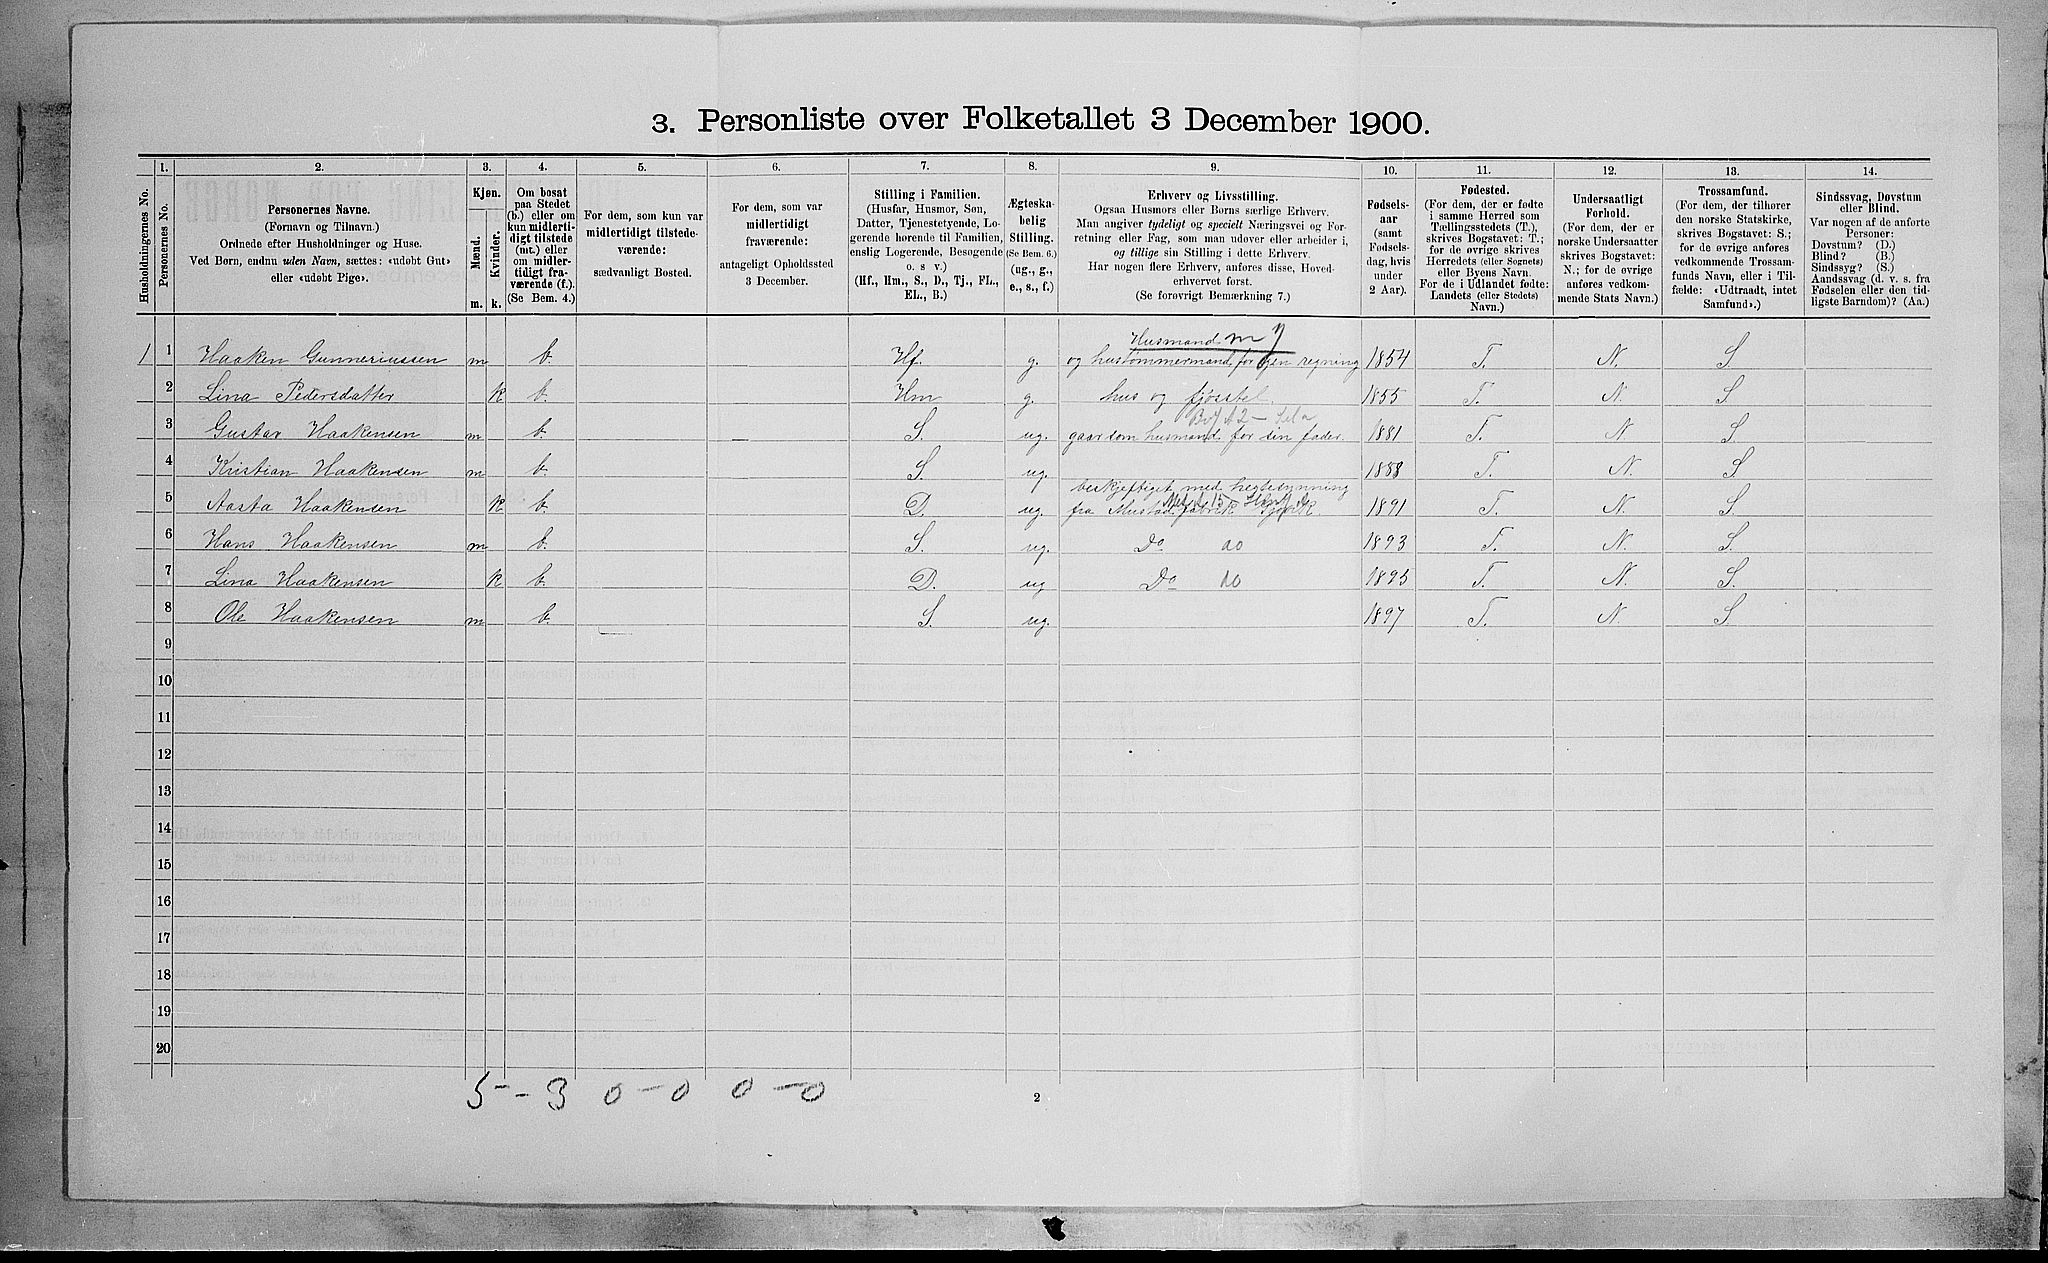 3. Personliste over Folketallet 3 December 1900.
1. 2. 3. 4. 5. 6. 7. 8. 9. 10. 11. 12. 13. 14.
Husholdningernes No.
Personernes No.
Personernes Navne.
(Fornavn og Tilnavn.)
Ordnede efter Husholdninger og Huse.
Ved Børn, endnu uden Navn, sættes: «udøbt Gut»
eller «udøbt Pige».
Kjøn.
Mænd.
Kvinder.
m. k.
Om bosat
paa Stedet
(b.) eller om
kun midlerti-
digt tilstede
(mt.) eller
om midler-
tidigt fra-
værende (f.).
(Se Bem. 4.)
For dem, som kun var
midlertidigt tilstede-
værende:
sædvanligt Bosted.
For dem, som var
midlertidigt
fraværende:
antageligt Opholdssted
3 December.
Stilling i Familien.
(Husfar, Husmor, Søn,
Datter, Tjenestetyende, Lo-
gerende hørende til Familien,
enslig Logerende, Besøgende
o. s v.)
(Hf., Hm., S., D., Tj., FL.,
EL., B.)
Ægteska-
belig
Stilling.
(Se Bem. 6.)
(ug., g.,
e., s., f.)
Erhverv og Livsstilling.
Ogsaa Husmors eller Børns særlige Erhverv.
Man angiver tydeligt og specielt Næringsvei og For-
retning eller Fag, som man udover eller arbeider i,
og tillige sin Stilling i dette Erhverv.
Har nogen flere Erhverv, anføres disse, Hoved-
erhvervet først.
(Se forøvrigt Bemærkning 7.)
Fødsels-
aar
(samt
Fødsels-
dag, hvis
under
2 Aar).
Fødested.
(For dem, der er fødte
i samme Herred som
Tællingsstedets (T.),
skrives Bogstavet: T.;
for de øvrige skrives
Herredets (eller Sognets)
eller Byens Navn.
For de i Udlandet fødte:
Landets (eller Stedets)
Navn.)
Undersaatligt
Forhold.
(For dem, der er
norske Undersaatter
skrives Bogstavet:
N.; for de øvrige
anføres vedkom-
mende Stats Navn.)
Trossamfund.
(For dem, der tilhører
den norske Statskirke,
skrives Bogstavet: S.;
for de øvrige anføres
vedkommende Trossam-
funds Navn, eller i Til-
fælde: «Udtraadt, intet
Samfund».)
Sindssvag, Døvstum
eller Blind.
Var nogen af de anførte
Personer:
Døvstum? (D.)
Blind? (B.)
Sindssyg? (S.)
Aandssvag (d. v. s. fra
Fødselen eller den tid-
ligste Barndom)? (Aa.)
Husmand m
1 1 Haaken Gunneriussen m b. Hf g. og hustømmermand for egen regning 1854 T. N. S
2 Lina Pedersdatter k b. Hm g. hus og fjøsstel. 1855 T. N. S
3 Gustav Haakensen m b. S. ug. gaar som husmand for sin fader. 1881 T. N S
4 Kristian Haakensen m b. S ug. 1888 T. N. S
beskjeftiget med hegtesynning
5 Aasta Haakensen k b. D. ug. fra Mustad fabrik Gjøvik. 1891 T. N. S.
6 Hans Haakensen m b. S ug. Do do 1893 T. N. S.
7 Lina Haakensen k b. D. ug Do do 1895 T. N. S.
8 Ole Haakensen m b. S. ug. 1897 T. N. S.
9
10
11
12
13
14
15
16
17
18
19
20
5 - 3 0 - 0 0 - 0
2